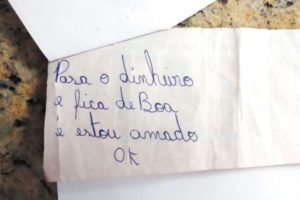 Para o dinheiro
e fica de Boa
e estou amado
OK